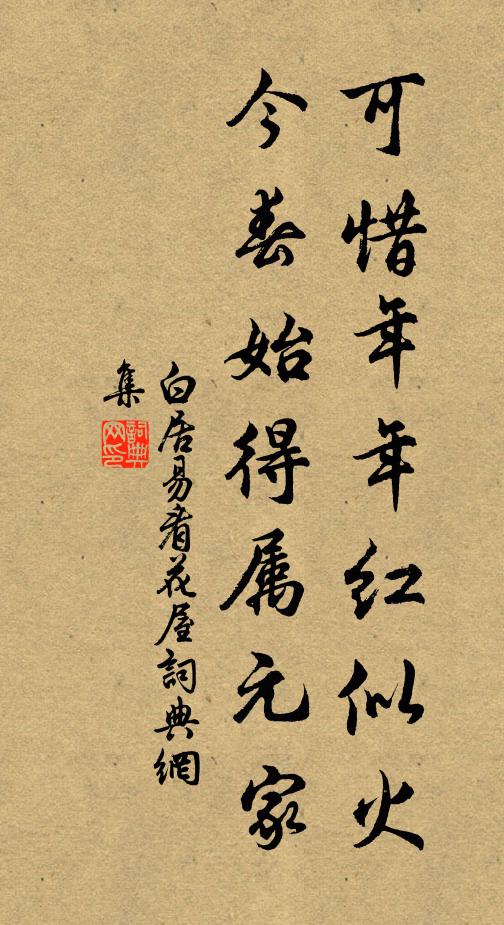 可惜年年红似火
今春始得属元家
白居易看花屋詞典網
集
詞典
网印